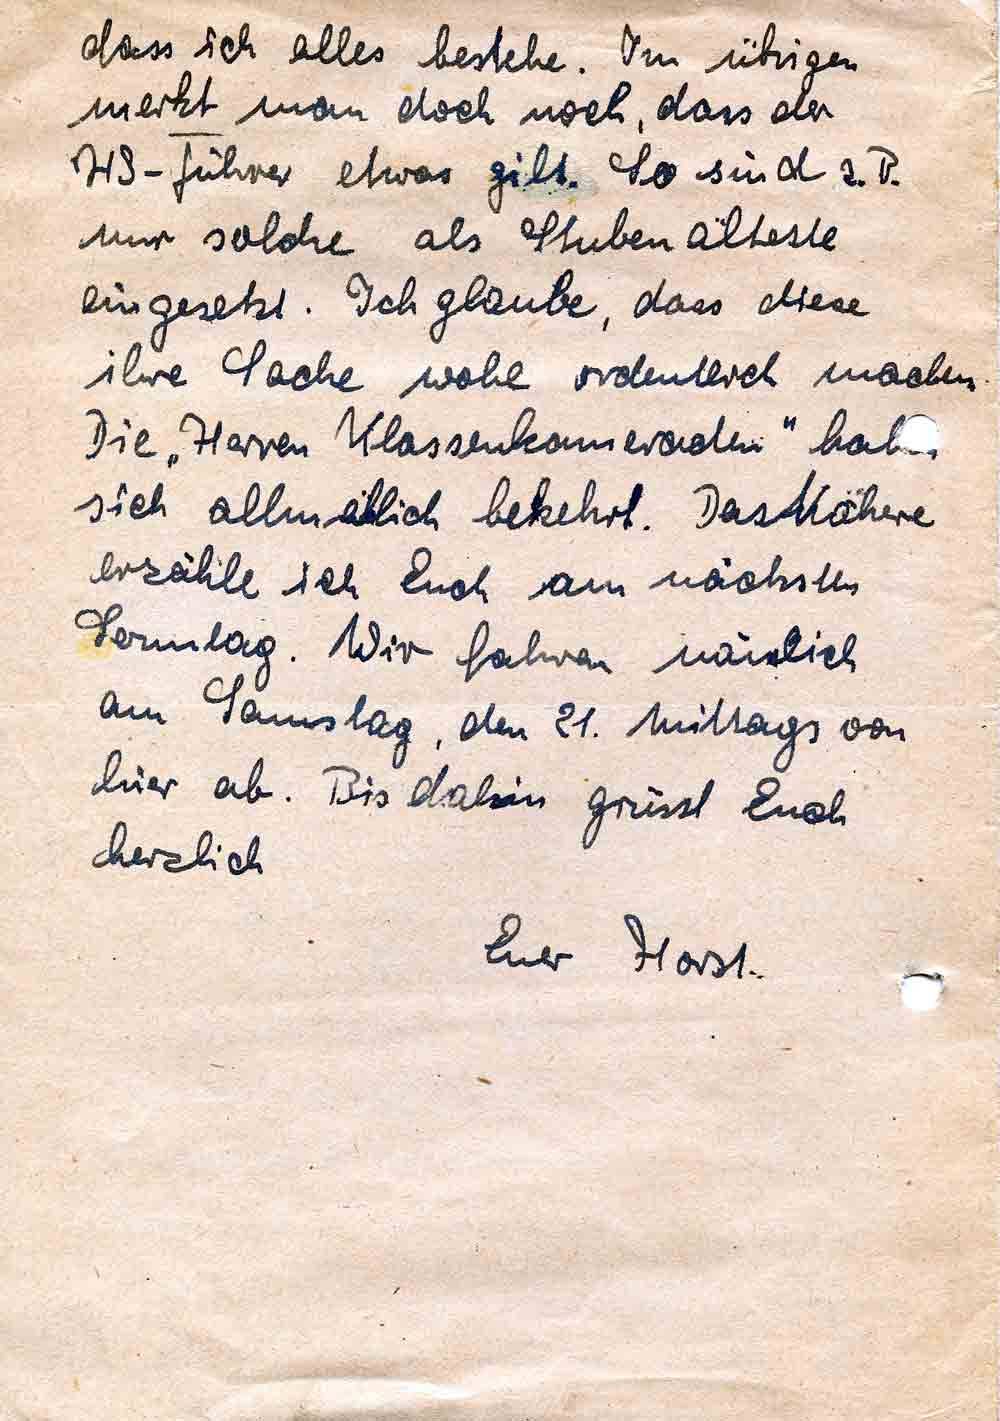 dass ich alles bestehe. Im übrigen
merkt man doch noch, dass der
HJ-Führer etwas gilt. So sind z.B.
nur solche als Stubenälteste
eingesetzt. Ich glaube, dass diese
ihre Sache wohl ordentlich machen.
Die „Herren Klassenkameraden" haben
sich allmählich bekehrt. Das Nähere
erzähle ich Euch am nächsten
Sonntag. Wir fahren nämlich
am Samstag, den 21. mittags von
hier ab. Bis dahin grüsst Euch
herzlich
Euer Horst.